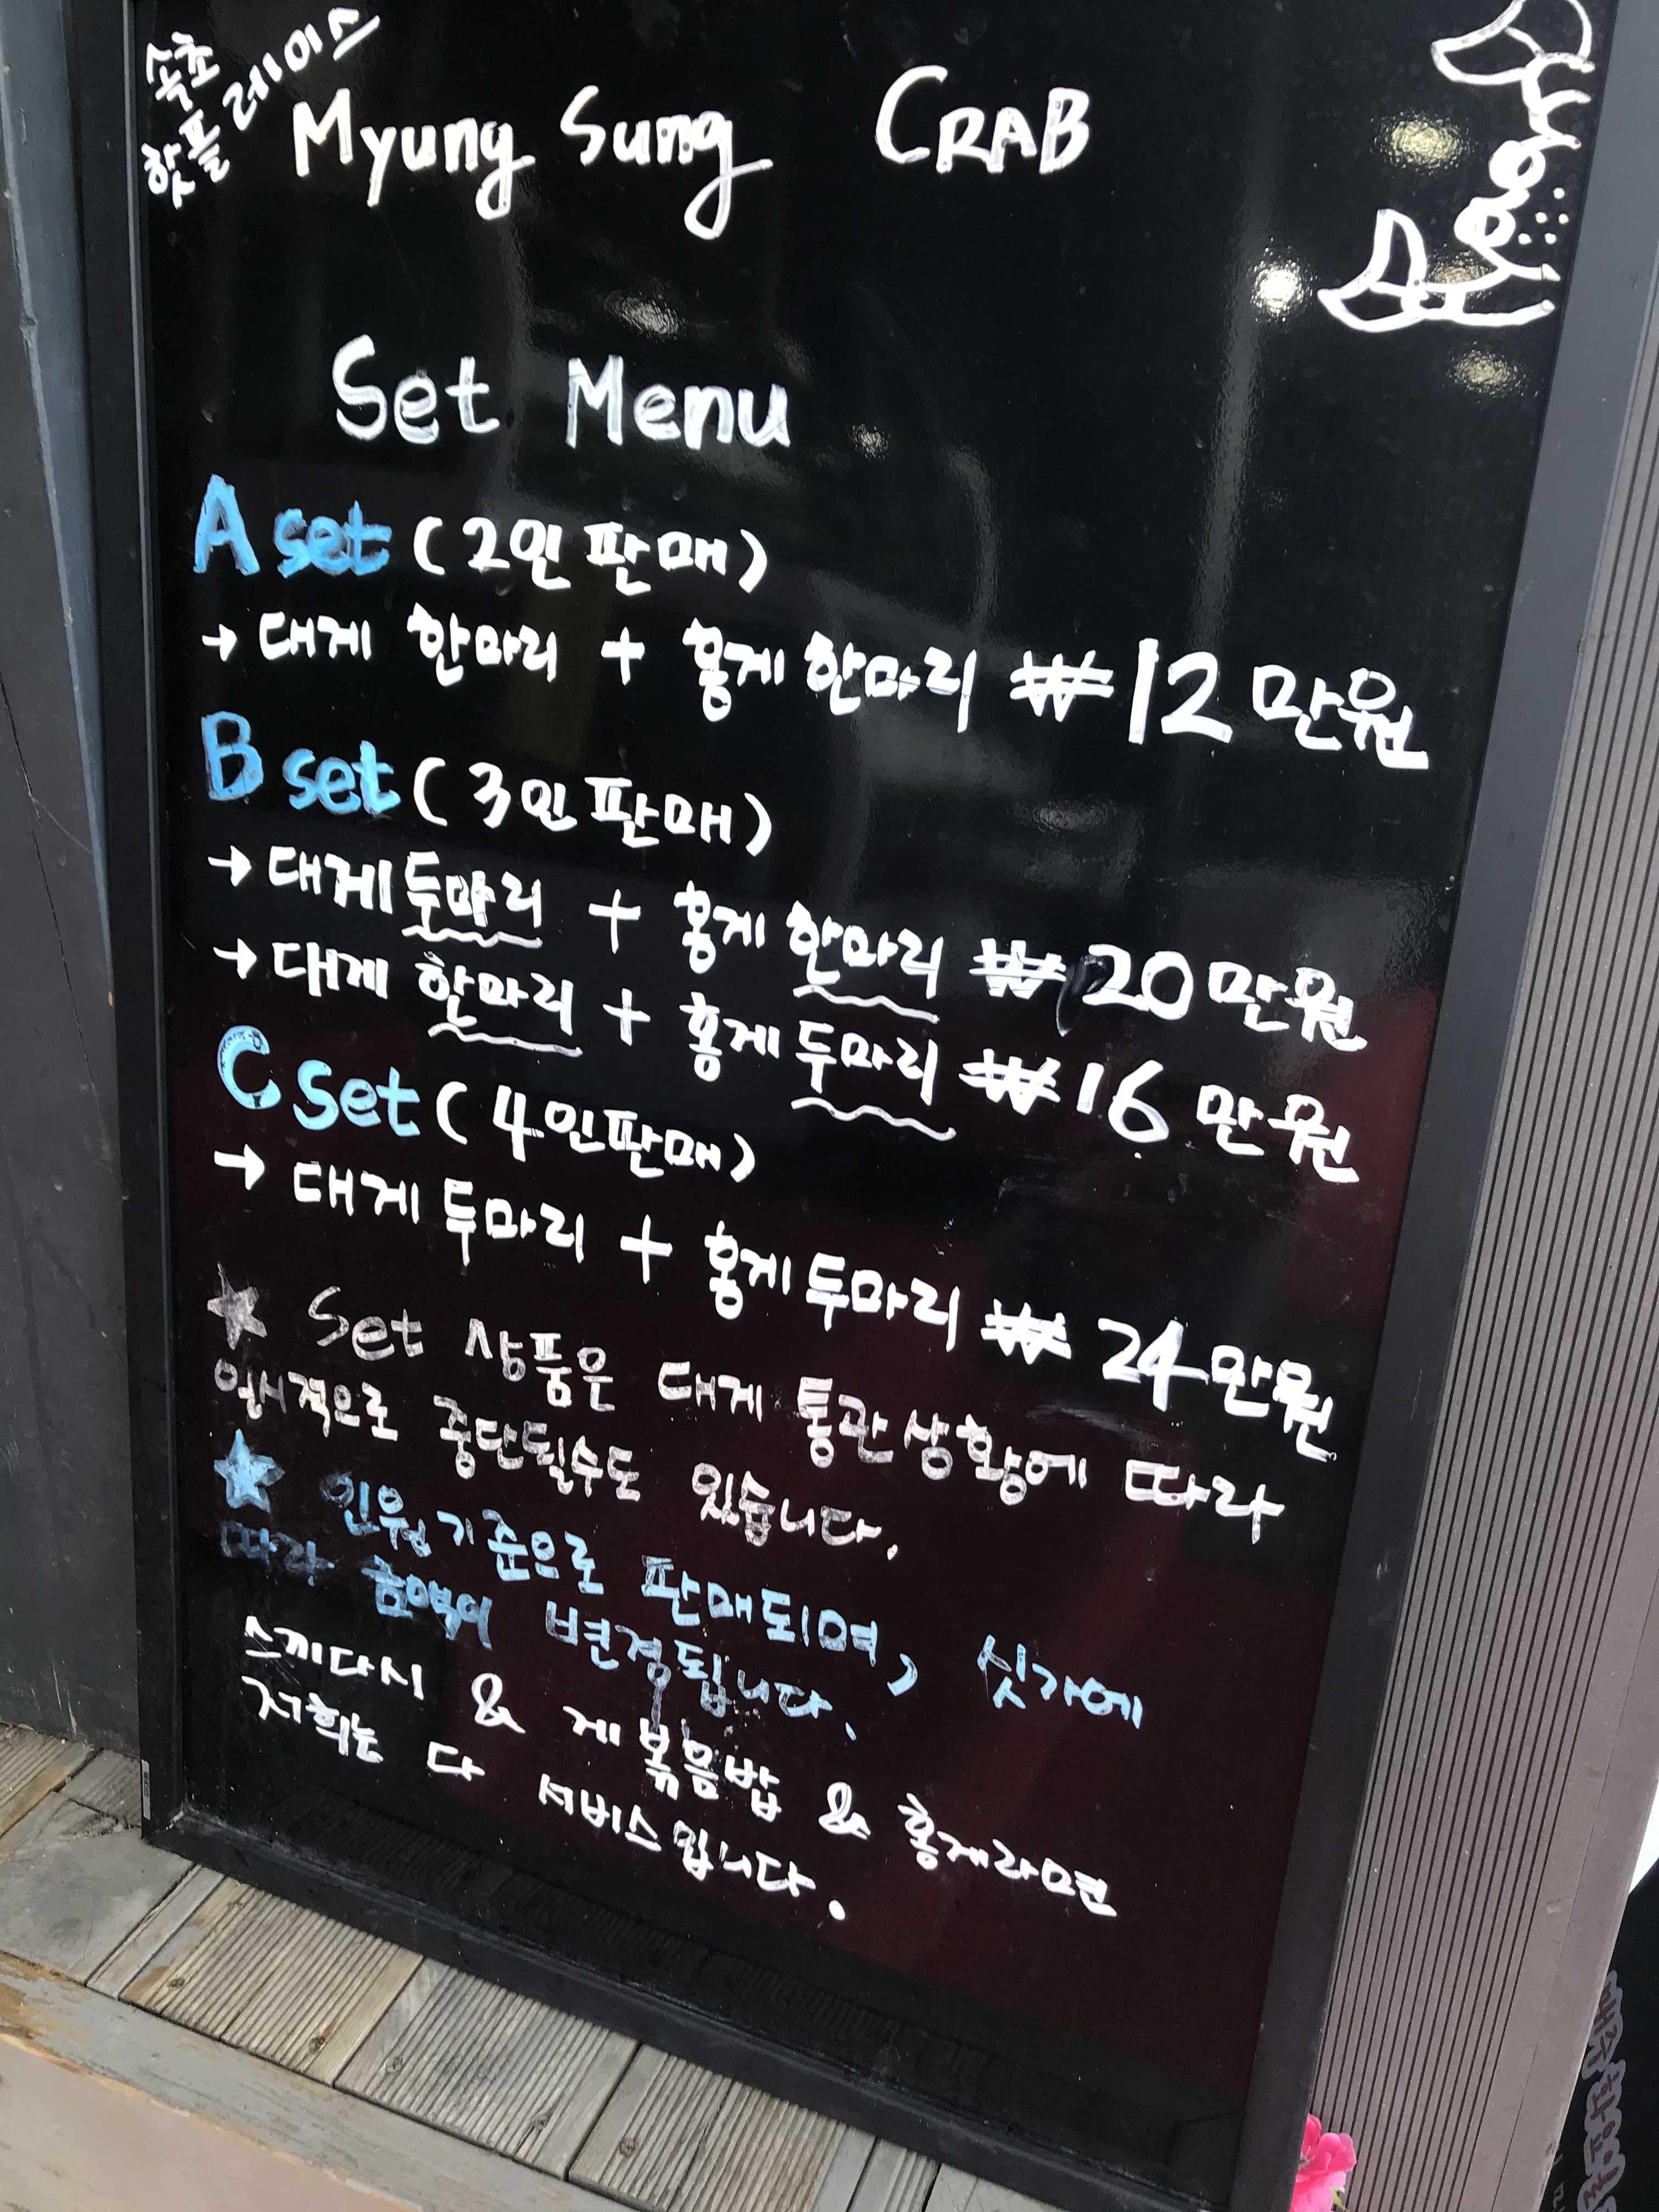 속초
핫플레이스
Myung Sung CRAB
Set Menu
A set (2인 판매)
→ 대게 한마리 + 홍게 한마리 ₩ 12만원
B set (3인 판매)
→ 대게 두마리 + 홍게 한마리 ₩ 20만원
→ 대게 한마리 + 홍게 두마리 ₩ 16만원
C set (4인판매)
→ 대게 두마리 + 홍게 두마리 ₩ 24만원
★ Set 상품은 대게 통관상황에 따라
일시적으로 중단될수도 있습니다.
★ 인원기준으로 판매되며, 싯가에
따라 금액이 변경됩니다.
스끼다시 & 게볶음밥 & 홍게라면
저희는 다 서비스입니다.